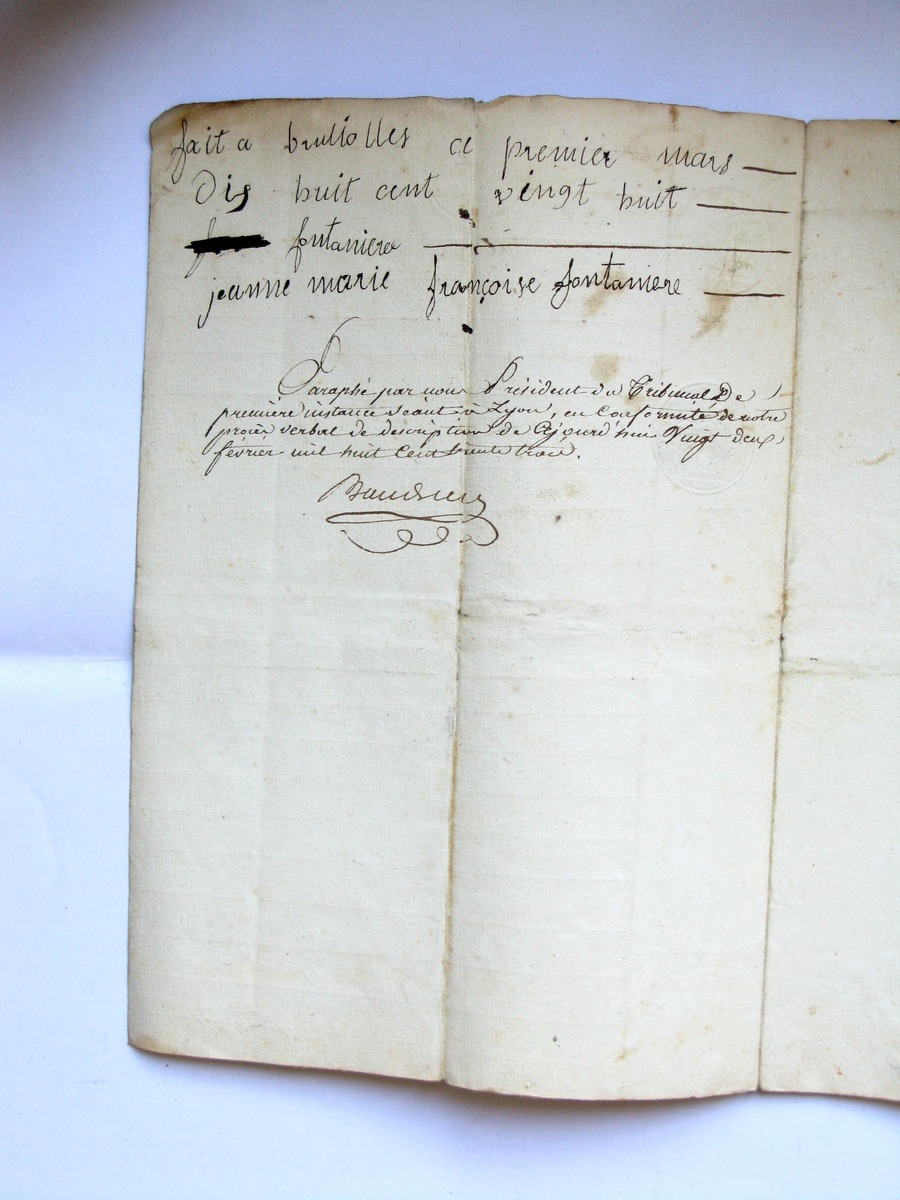 fait a brullolles ce premier mars
Dis huit cent vingt huit
fontaniere
jeanne marie françoise fontaniere
Paraphé par nous Président du Tribunal De
première instance séant à Lyon, en Conformité de notre
procès verbal de description de Cejourd'hui Vingt deux
février mil huit Cent trente trois.